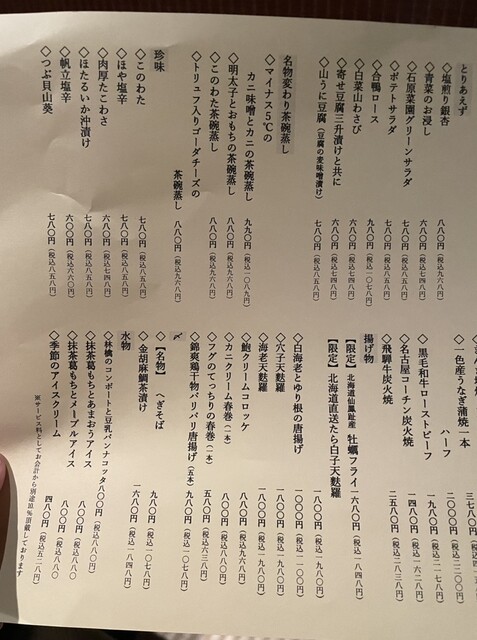 とりあえず
◇塩煎り銀杏 八八〇円（税込九六八円）
◇青菜のお浸し 六八〇円（税込七四八円）
◇石原菜園グリーンサラダ 七八〇円（税込八五八円）
◇ポテトサラダ 七八〇円（税込八五八円）
◇合鴨ロース 九八〇円（税込一〇七八円）
◇白菜山わさび 六八〇円（税込七四八円）
◇寄せ豆腐三升漬けと共に 六八〇円（税込七四八円）
◇山うに豆腐（豆腐の麦味噌漬け） 七八〇円（税込八五八円）
名物変わり茶碗蒸し
◇マイナス5℃の
カニ味噌とカニの茶碗蒸し 九九〇円（税込一〇八九円）
◇明太子とおもちの茶碗蒸し 八八〇円（税込九六八円）
◇このわた茶碗蒸し 八八〇円（税込九六八円）
◇トリュフ入りゴーダチーズの
茶碗蒸し 八八〇円（税込九六八円）
珍味
◇このわた 七八〇円（税込八五八円）
◇ほや塩辛 七八〇円（税込八五八円）
◇肉厚たこわさ 六八〇円（税込七四八円）
◇ほたるいか沖漬け 七八〇円（税込八五八円）
◇帆立塩辛 六〇〇円（税込六六〇円）
◇つぶ貝山葵 七八〇円（税込八五八円）
三七八〇円
◇一色産うなぎ蒲焼一本
ハーフ 二〇〇〇円（税込二二〇〇円）
◇黒毛和牛ローストビーフ 一九八〇円（税込二一七八円）
◇名古屋コーチン炭火焼 一四八〇円（税込一六二八円）
◇飛騨牛炭火焼 二五八〇円（税込二八三八円）
揚げ物
【限定】北海道仙鳳趾産 牡蠣フライ 一六八〇円（税込一八四八円）
【限定】北海道直送たら白子天麩羅
一八〇〇円（税込一九八〇円）
◇白海老とゆり根の唐揚げ 一〇〇〇円（税込一一〇〇円）
◇穴子天麩羅 一八〇〇円（税込一九八〇円）
◇海老天麩羅 一八〇〇円（税込一九八〇円）
◇鮑クリームコロッケ 八八〇円（税込九六八円）
◇カニクリーム春巻（一本） 八〇〇円（税込八八〇円）
◇フグのてっちりの春巻（一本） 五八〇円（税込六三八円）
◇錦爽鶏干物パリパリ唐揚げ（五本） 九八〇円（税込一〇七八円）
〆
◇【名物】 へぎそば 九八〇円（税込一〇七八円）
◇金胡麻鯛茶漬け 一六八〇円（税込一八四八円）
水物
◇林檎のコンポートと豆乳パンナコッタ 八〇〇円（税込八八〇円）
◇抹茶葛もちとあまおうアイス 八〇〇円（税込八八〇
◇抹茶葛もちとメープルアイス 八〇〇円（税込八八〇
◇季節のアイスクリーム 四八〇円（税込五二八円）
※サービス料としてお会計から別途10％頂戴しております